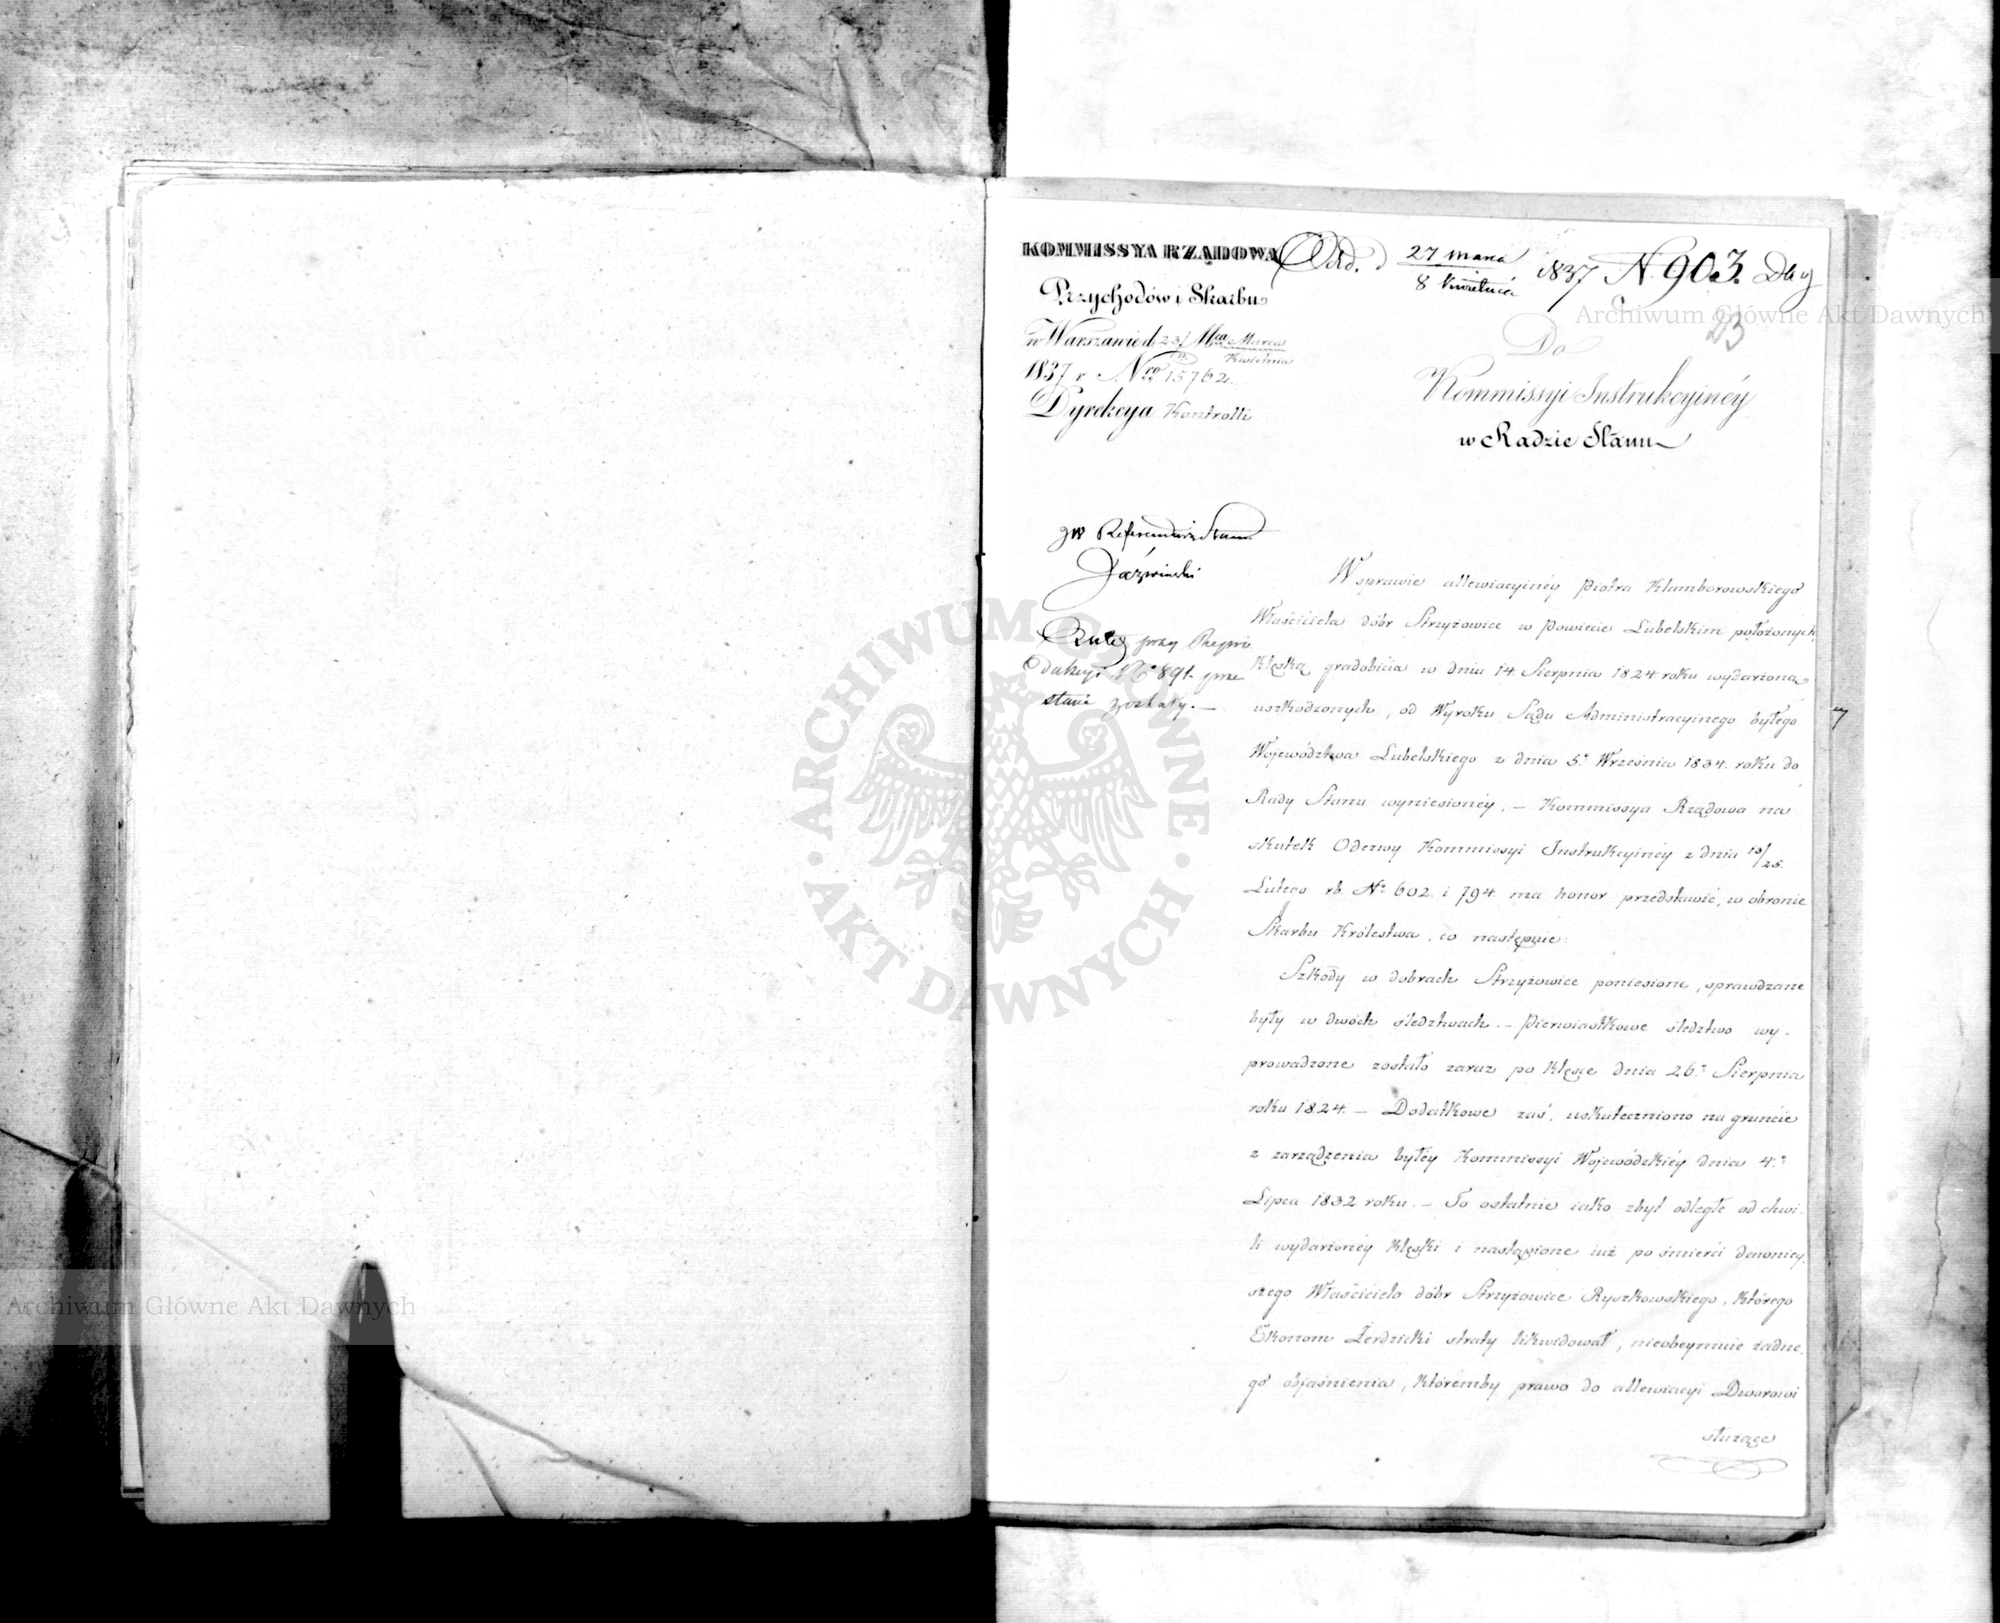 KOMMISSYA RZĄDOWA
Przychodów i Skarbu
w Warszawie d 23 Mca Marca
4 Kwietnia
1837 r. Nro 15762.
Dyrekcya Kontrolli
Odd. d 27 marca
8 kwietnia 1837 N. 903.
23
Do
Kommissyi Instrukcyinéy
w Radzie Stanu
JW Referendarz Stanu
Jaźwiński
przy
N° 891.
zostały. —
W sprawie allewiacyinéy Piotra Klamborowskiego
Właściciela dóbr Strzyżowice w Powiecie Lubelskim położonych
klęską gradobicia w dniu 14 Sierpnia 1824 roku wydarzoną
uszkodzonych, od Wyroku Sądu Administracyinego byłego
Województwa Lubelskiego z dnia 5. Września 1834. roku do
Rady Stanu wyniesionéy. — Kommissya Rządowa na
skutek Odezwy Kommissyi Instrukcyinéy z dnia 13/25.
Lutego rb. N° 602. i 794. ma honor przedstawić, w obronie
Skarbu Królestwa, co następuie:
Szkody w dobrach Strzyżowice poniesione, sprawdzane
były w dwóch śledztwach. — Pierwiastkowe śledztwo wy-
prowadzone zostało zaraz po klęsce dnia 26. Sierpnia
roku 1824. — Dodatkowe zaś, uskuteczniono na gruncie
z zarządzenia byłéy Kommissyi Wojewódzkiéy dnia 4.
Lipca 1832 roku. — To ostatnie iako zbyt odległe od chwi-
li wydarzonéy klęski i nastąpione iuż po śmierci dawniey-
szego Właściciela dóbr Strzyżowice Ryszkowskiego, którego
Ekonom Żerdzicki straty likwidował, nieobeymuie żadne-
go objaśnienia, któremby prawo do allewiacyi Dworowi
służące
Archiwum Główne Akt Dawnych
Archiwum Główne Akt Dawnych
ARCHIWUM GŁÓWNE AKT DAWNYCH